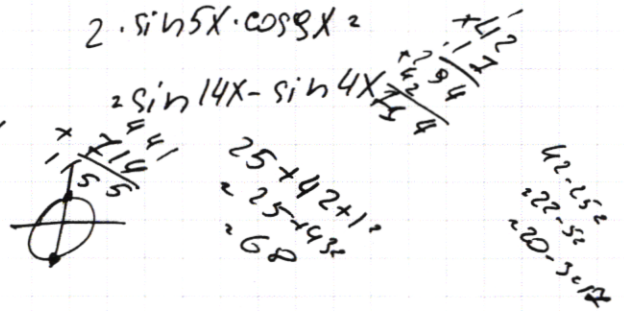 2·sin5x·cos9x=
=sin14x-sin4x
+42
17
+294
42
714
+441
714
155
25+42+1=
=25+43=
=68
42-25=
=22-5=
=20-3=17